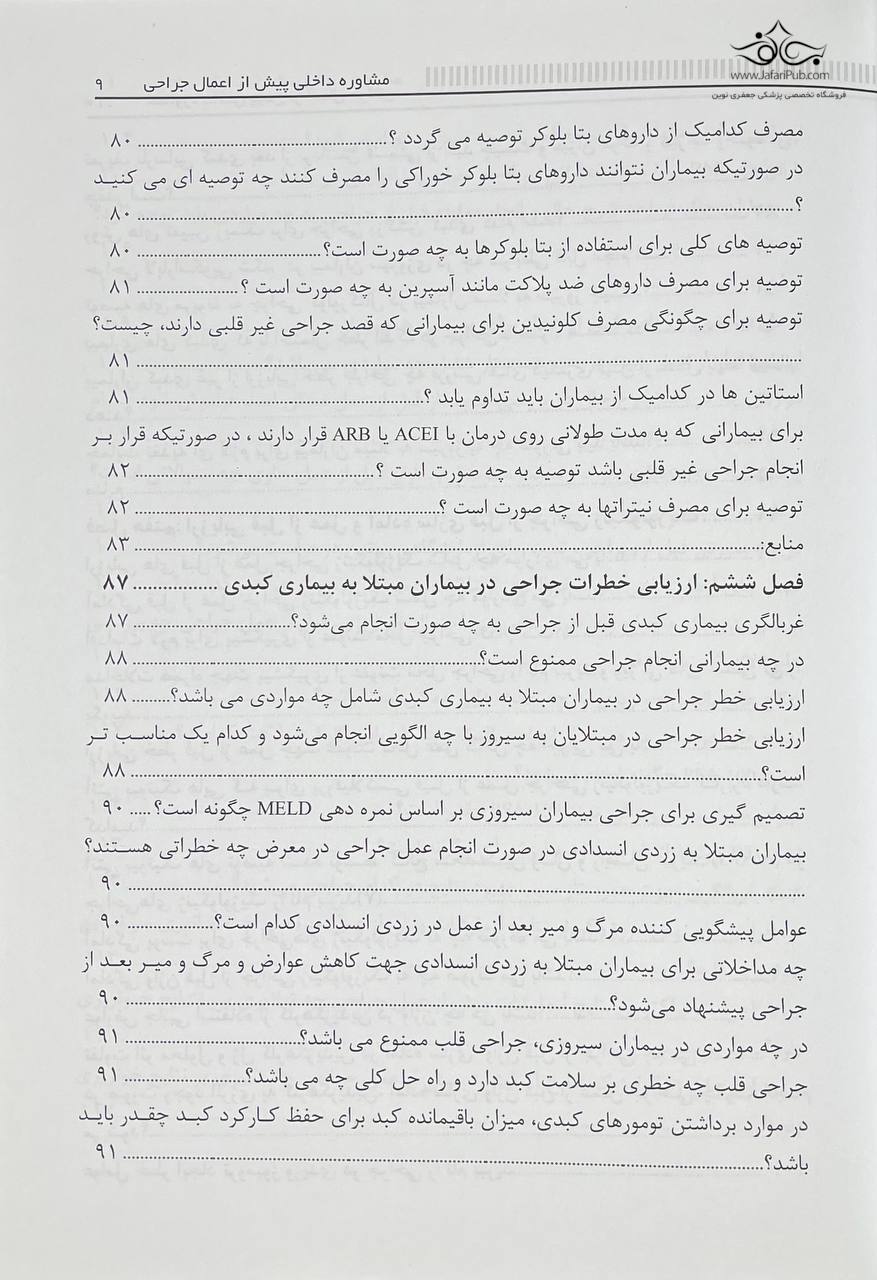 بانوی
www.JafariPub.com
فروشگاه تخصصی پزشکی جعفری نوین
مشاوره داخلی پیش از اعمال جراحی ۹
مصرف کدامیک از داروهای بتا بلوکر توصیه می گردد ؟ ........ ۸۰
در صورتیکه بیماران نتوانند داروهای بتا بلوکر خوراکی را مصرف کنند چه توصیه ای می کنید
؟ ........ ۸۰
توصیه های کلی برای استفاده از بتا بلوکرها به چه صورت است؟ ........ ۸۰
توصیه برای مصرف داروهای ضد پلاکت مانند آسپرین به چه صورت است ؟ ........ ۸۱
توصیه برای چگونگی مصرف کلونیدین برای بیمارانی که قصد جراحی غیر قلبی دارند، چیست؟
........ ۸۱
استاتین ها در کدامیک از بیماران باید تداوم یابد ؟ ........ ۸۱
برای بیمارانی که به مدت طولانی روی درمان با ACEI یا ARB قرار دارند ، در صورتیکه قرار بر
انجام جراحی غیر قلبی باشد توصیه به چه صورت است ؟ ........ ۸۲
توصیه برای مصرف نیتراتها به چه صورت است ؟ ........ ۸۲
منابع: ........ ۸۳
فصل ششم: ارزیابی خطرات جراحی در بیماران مبتلا به بیماری کبدی ........ ۸۷
غربالگری بیماری کبدی قبل از جراحی به چه صورت انجام می‌شود؟ ........ ۸۷
در چه بیمارانی انجام جراحی ممنوع است؟ ........ ۸۸
ارزیابی خطر جراحی در بیماران مبتلا به بیماری کبدی شامل چه مواردی می باشد؟ ........ ۸۸
ارزیابی خطر جراحی در مبتلایان به سیروز با چه الگویی انجام می‌شود و کدام یک مناسب تر
است؟ ........ ۸۸
تصمیم گیری برای جراحی بیماران سیروزی بر اساس نمره دهی MELD چگونه است؟ ..... ۹۰
بیماران مبتلا به زردی انسدادی در صورت انجام عمل جراحی در معرض چه خطراتی هستند؟
........ ۹۰
عوامل پیشگویی کننده مرگ و میر بعد از عمل در زردی انسدادی کدام است؟ ........ ۹۰
چه مداخلاتی برای بیماران مبتلا به زردی انسدادی جهت کاهش عوارض و مرگ و میر بعد از
جراحی پیشنهاد می‌شود؟ ........ ۹۰
در چه مواردی در بیماران سیروزی، جراحی قلب ممنوع می باشد؟ ........ ۹۱
جراحی قلب چه خطری بر سلامت کبد دارد و راه حل کلی چه می باشد؟ ........ ۹۱
در موارد برداشتن تومورهای کبدی، میزان باقیمانده کبد برای حفظ کارکرد کبد چقدر باید
باشد؟ ........ ۹۱